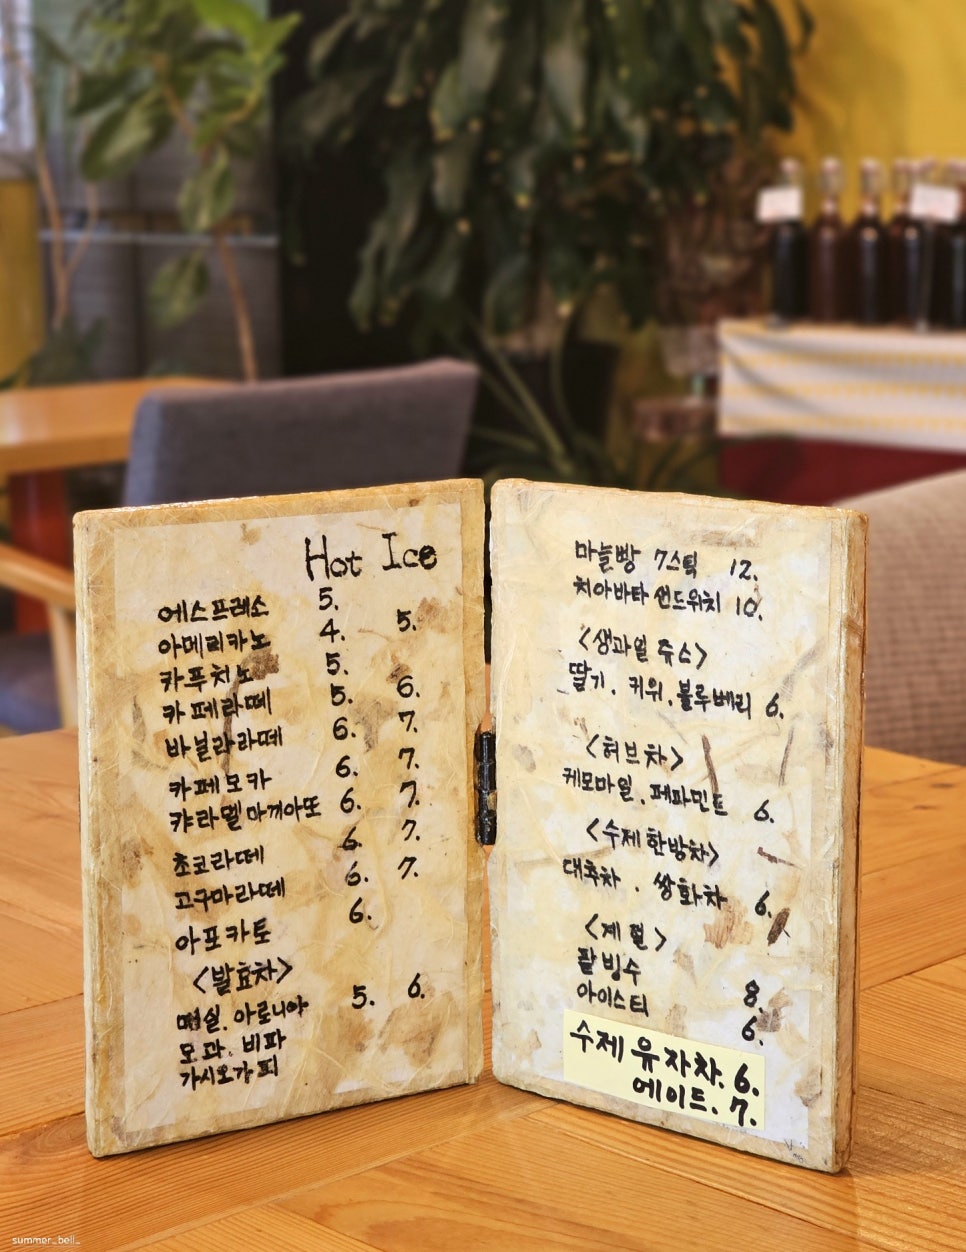 Hot Ice
에스프레소 5.
아메리카노 4. 5.
카푸치노 5.
카페라떼 5. 6.
바닐라라떼 6. 7.
카페모카 6. 7.
캬라멜마끼아또 6. 7.
초코라떼 6. 7.
고구마라떼 6. 7.
아포카토 6.
<발효차>
매실. 아로니아 5. 6.
모과. 비파
가시오가피
마늘빵 7스틱 12.
치아바타 샌드위치 10.
<생과일 쥬스>
딸기. 키위. 블루베리 6.
<허브차>
케모마일. 페파민트 6.
<수제 한방차>
대추차. 쌍화차 6.
<계절>
팥빙수 8.
아이스티 6.
수제 유자차. 6.
에이드. 7.
summer_bell_